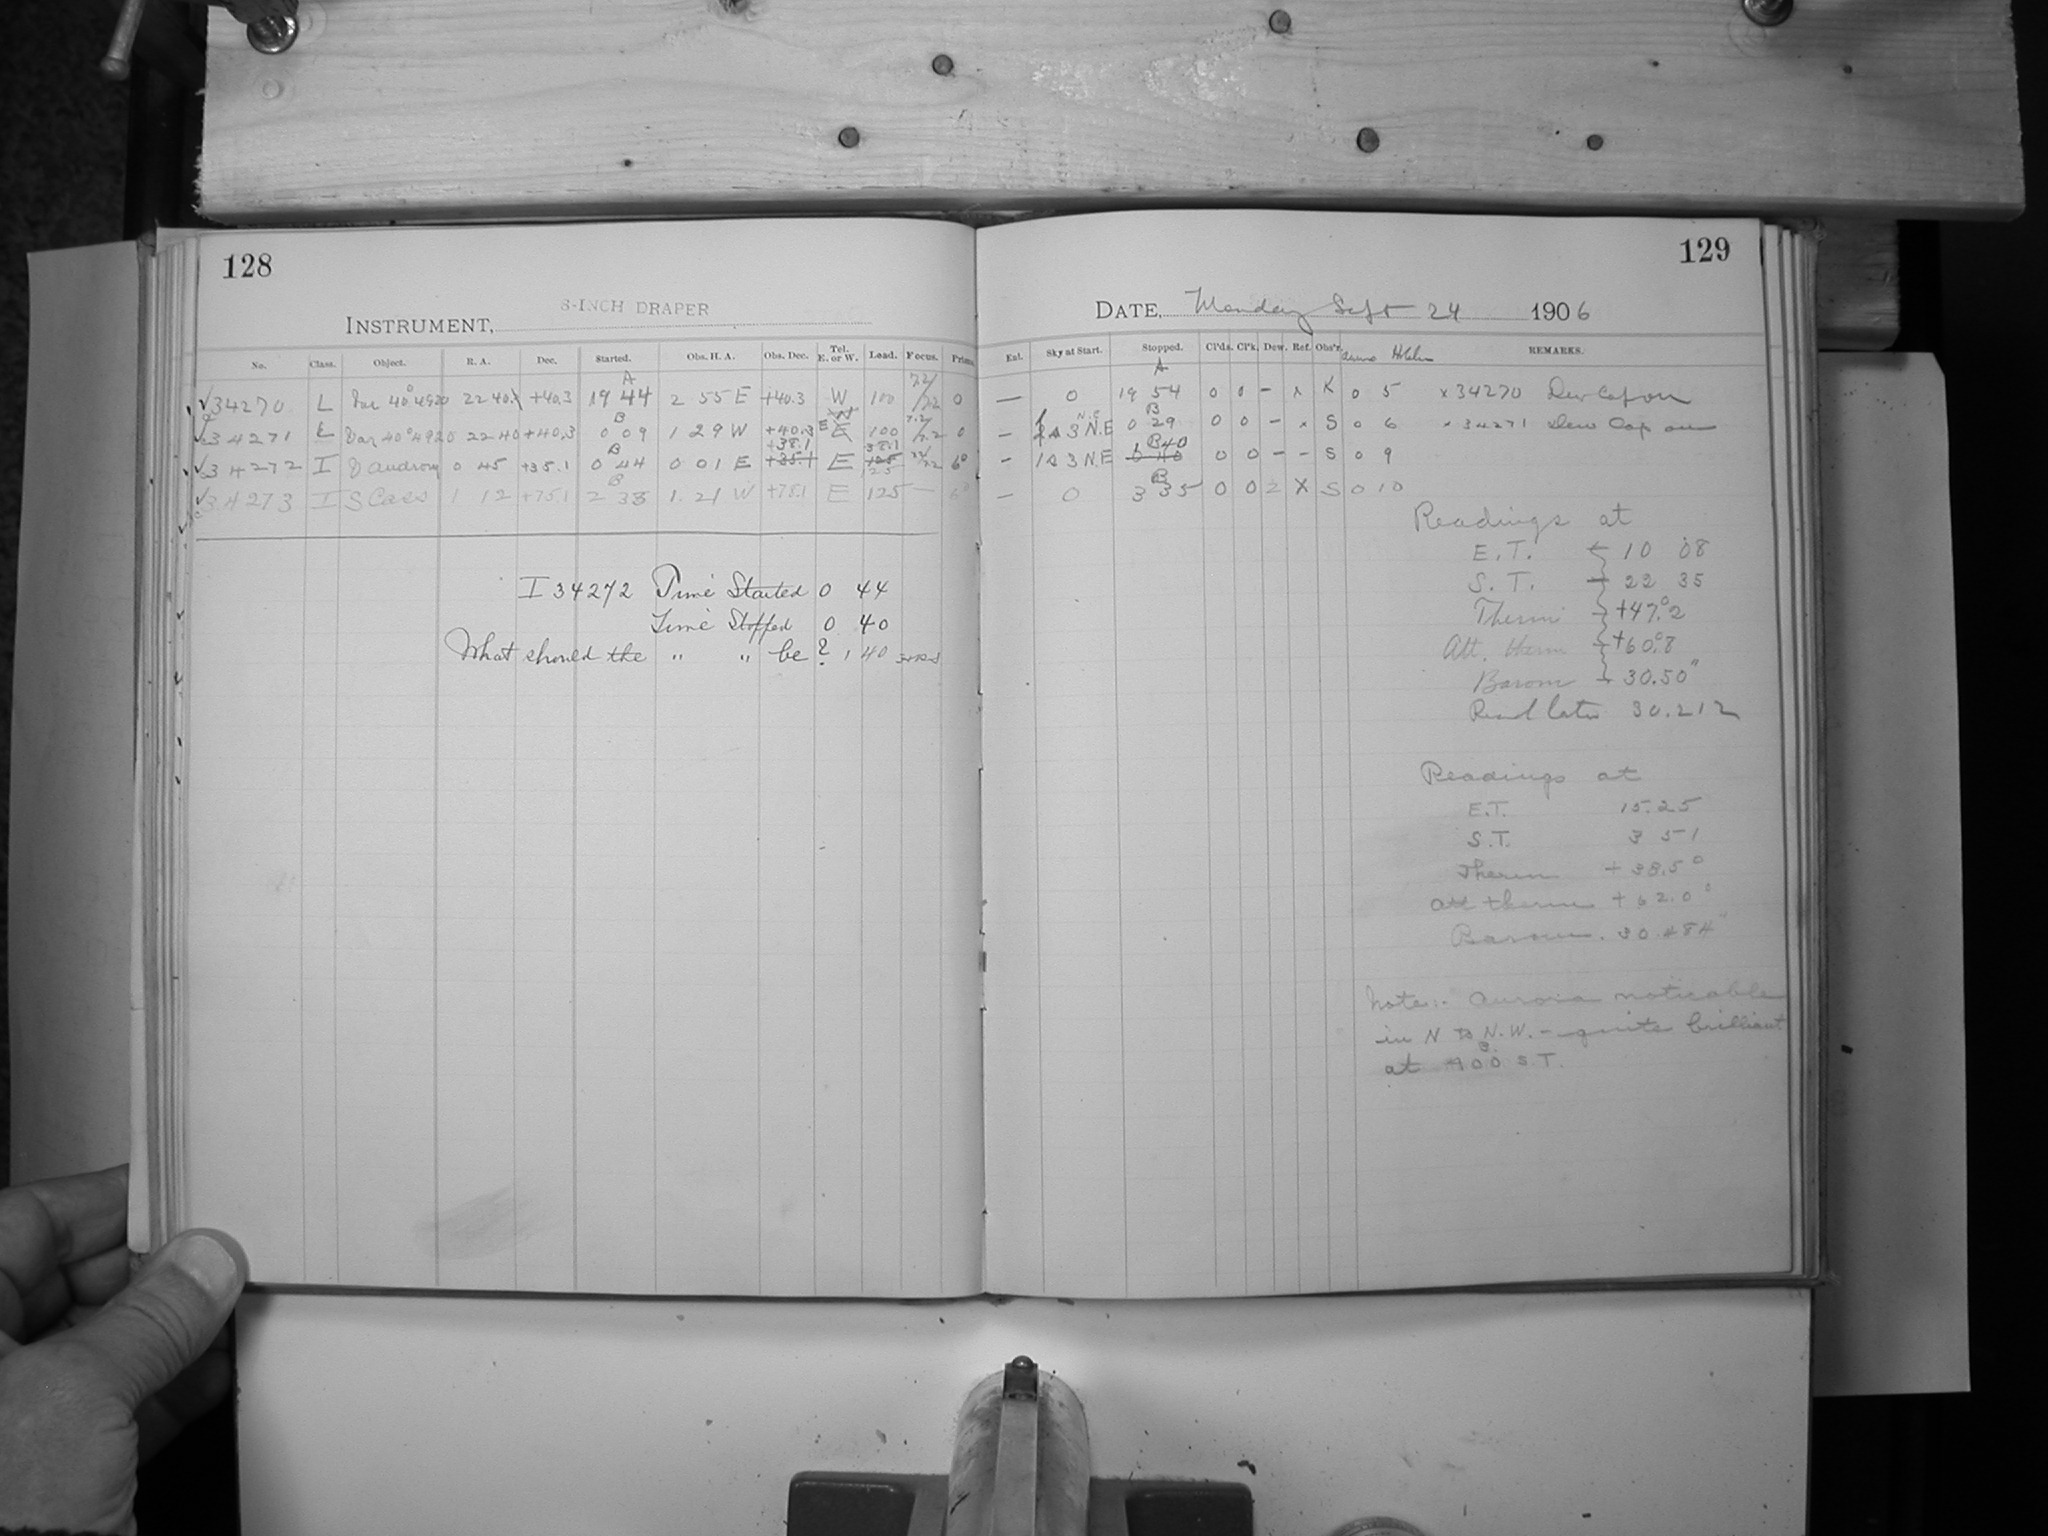 128
8-INCH DRAPER
INSTRUMENT,
No. Class. Object. R. A. Dec. Started. Obs. H. A. Obs. Dec. Tel. E. or W. Load. Focus. Prism
A
34270 L Var 40° 4920 22 40. +40.3 19 44 2 55 E +40.3 W 100 7.2/7.2 0
B
34271 L Var 40° 4920 22 40 +40.3 0 09 1 29 W +40.3 E 100 7.2/7.2 0
B +38.1 38.1
34272 I 0 45 +35.1 0 44 0 01 E +35.1 E 125 6°
B 25
34273 I S Cass 1 12 +75.1 2 33 1. 21 W +75.1 E 125 — 6°
I 34272 Time Started 0 44
Time Stopped 0 40
What should the " " be ? 1 40
129
DATE, Monday Sept 24 1906
Ent. Sky at Start. Stopped. Cl'ds. Cl'k. Dew. Ref. Obs'r. REMARKS.
A
— 0 19 54 0 0 – x K 0 5 x 34270 Dew Cap on
B
– 3 N.E 0 29 0 0 – x S 0 6 x 34271 Dew Cap on
B 40
– 3 N.E 0 40 0 0 – – S 0 9
B
– 0 3 35 0 0 2 X S 0 10
Readings at
E. T. 10 08
S. T. 22 35
Therm +47.°2
Att. therm +60.°8
Barom 30.50"
Read later 30.212
Readings at
E.T. 15.25
S.T. 3 51
Therm + 38.5°
Att therm + 62.0°
Barom. 30.484"
Note:- Aurora noticable
in N to N.W. – quite brilliant
at 400 S.T.